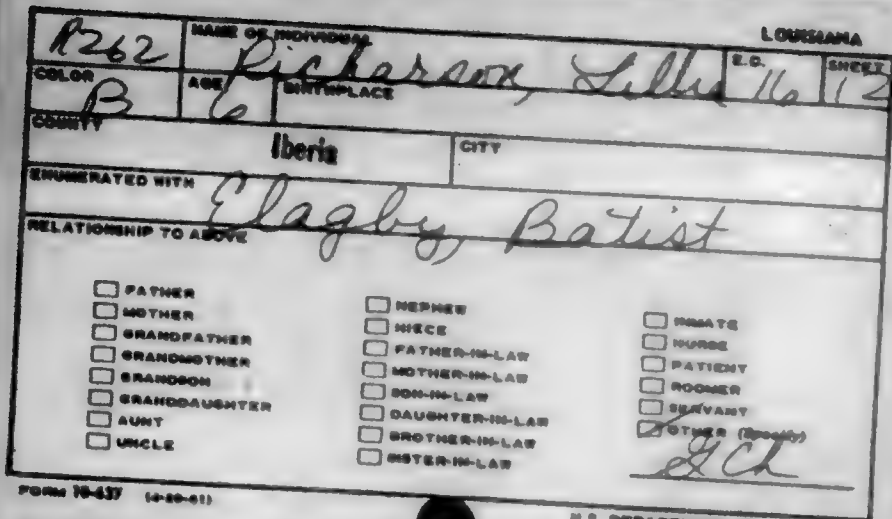 LOUISIANA
R262 NAME OF INDIVIDUAL Richarson, Lillie E.D. 16 SHEET 12
COLOR B AGE 6 BIRTHPLACE
COUNTY Iberia CITY
ENUMERATED WITH Elagby, Batist
RELATIONSHIP TO ABOVE
FATHER
MOTHER
GRANDFATHER
GRANDMOTHER
GRANDSON
GRANDDAUGHTER
AUNT
UNCLE
NEPHEW
NIECE
FATHER-IN-LAW
MOTHER-IN-LAW
SON-IN-LAW
DAUGHTER-IN-LAW
BROTHER-IN-LAW
SISTER-IN-LAW
INMATE
NURSE
PATIENT
ROOMER
SERVANT
OTHER (Specify)
G Ch
FORM 10-637 (4-20-61)